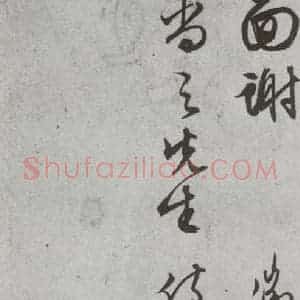 面謝
尚之先生侍
Shufaziliao.COM